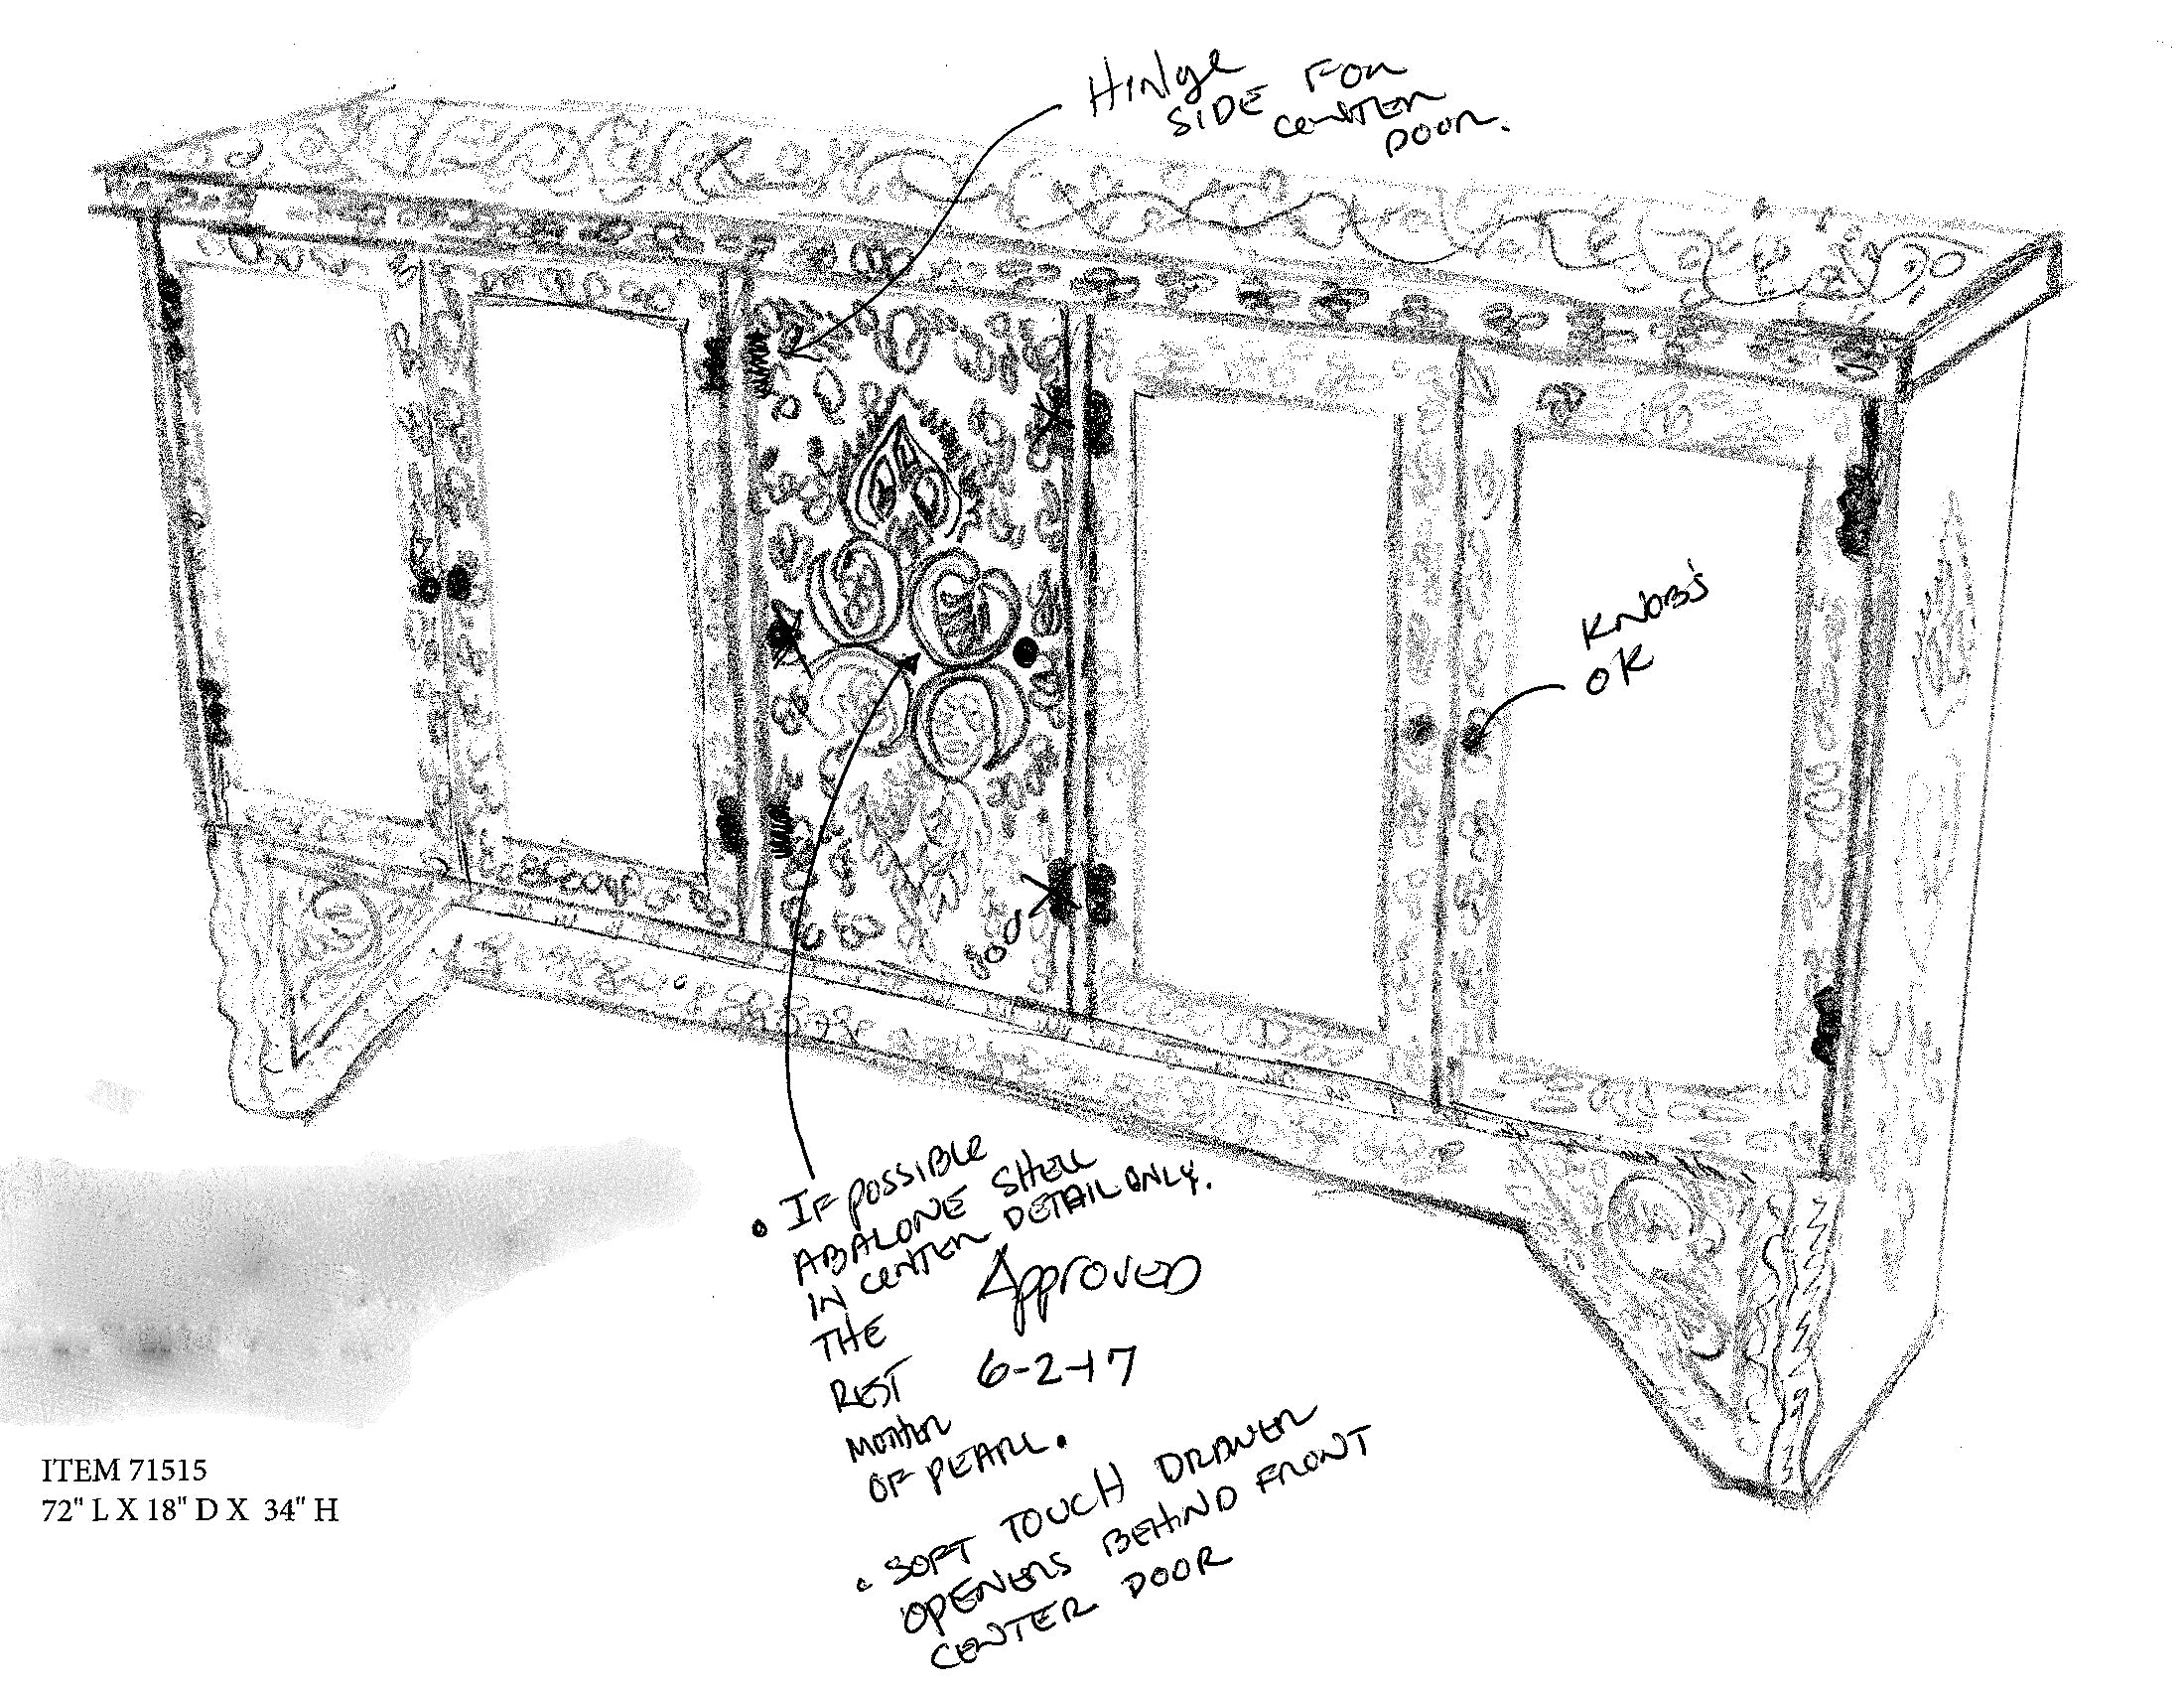 Hinge
SIDE FOR
CENTER
DOOR.
KNOB'S
OK
• IF POSSIBLE
ABALONE SHELL
IN CENTER DETAIL ONLY.
THE
REST
MOTHER
OF PEARL.
Approved
6-2-17
• SOFT TOUCH DRAWER
OPENERS BEHIND FRONT
CENTER DOOR
ITEM 71515
72" L X 18" D X 34" H